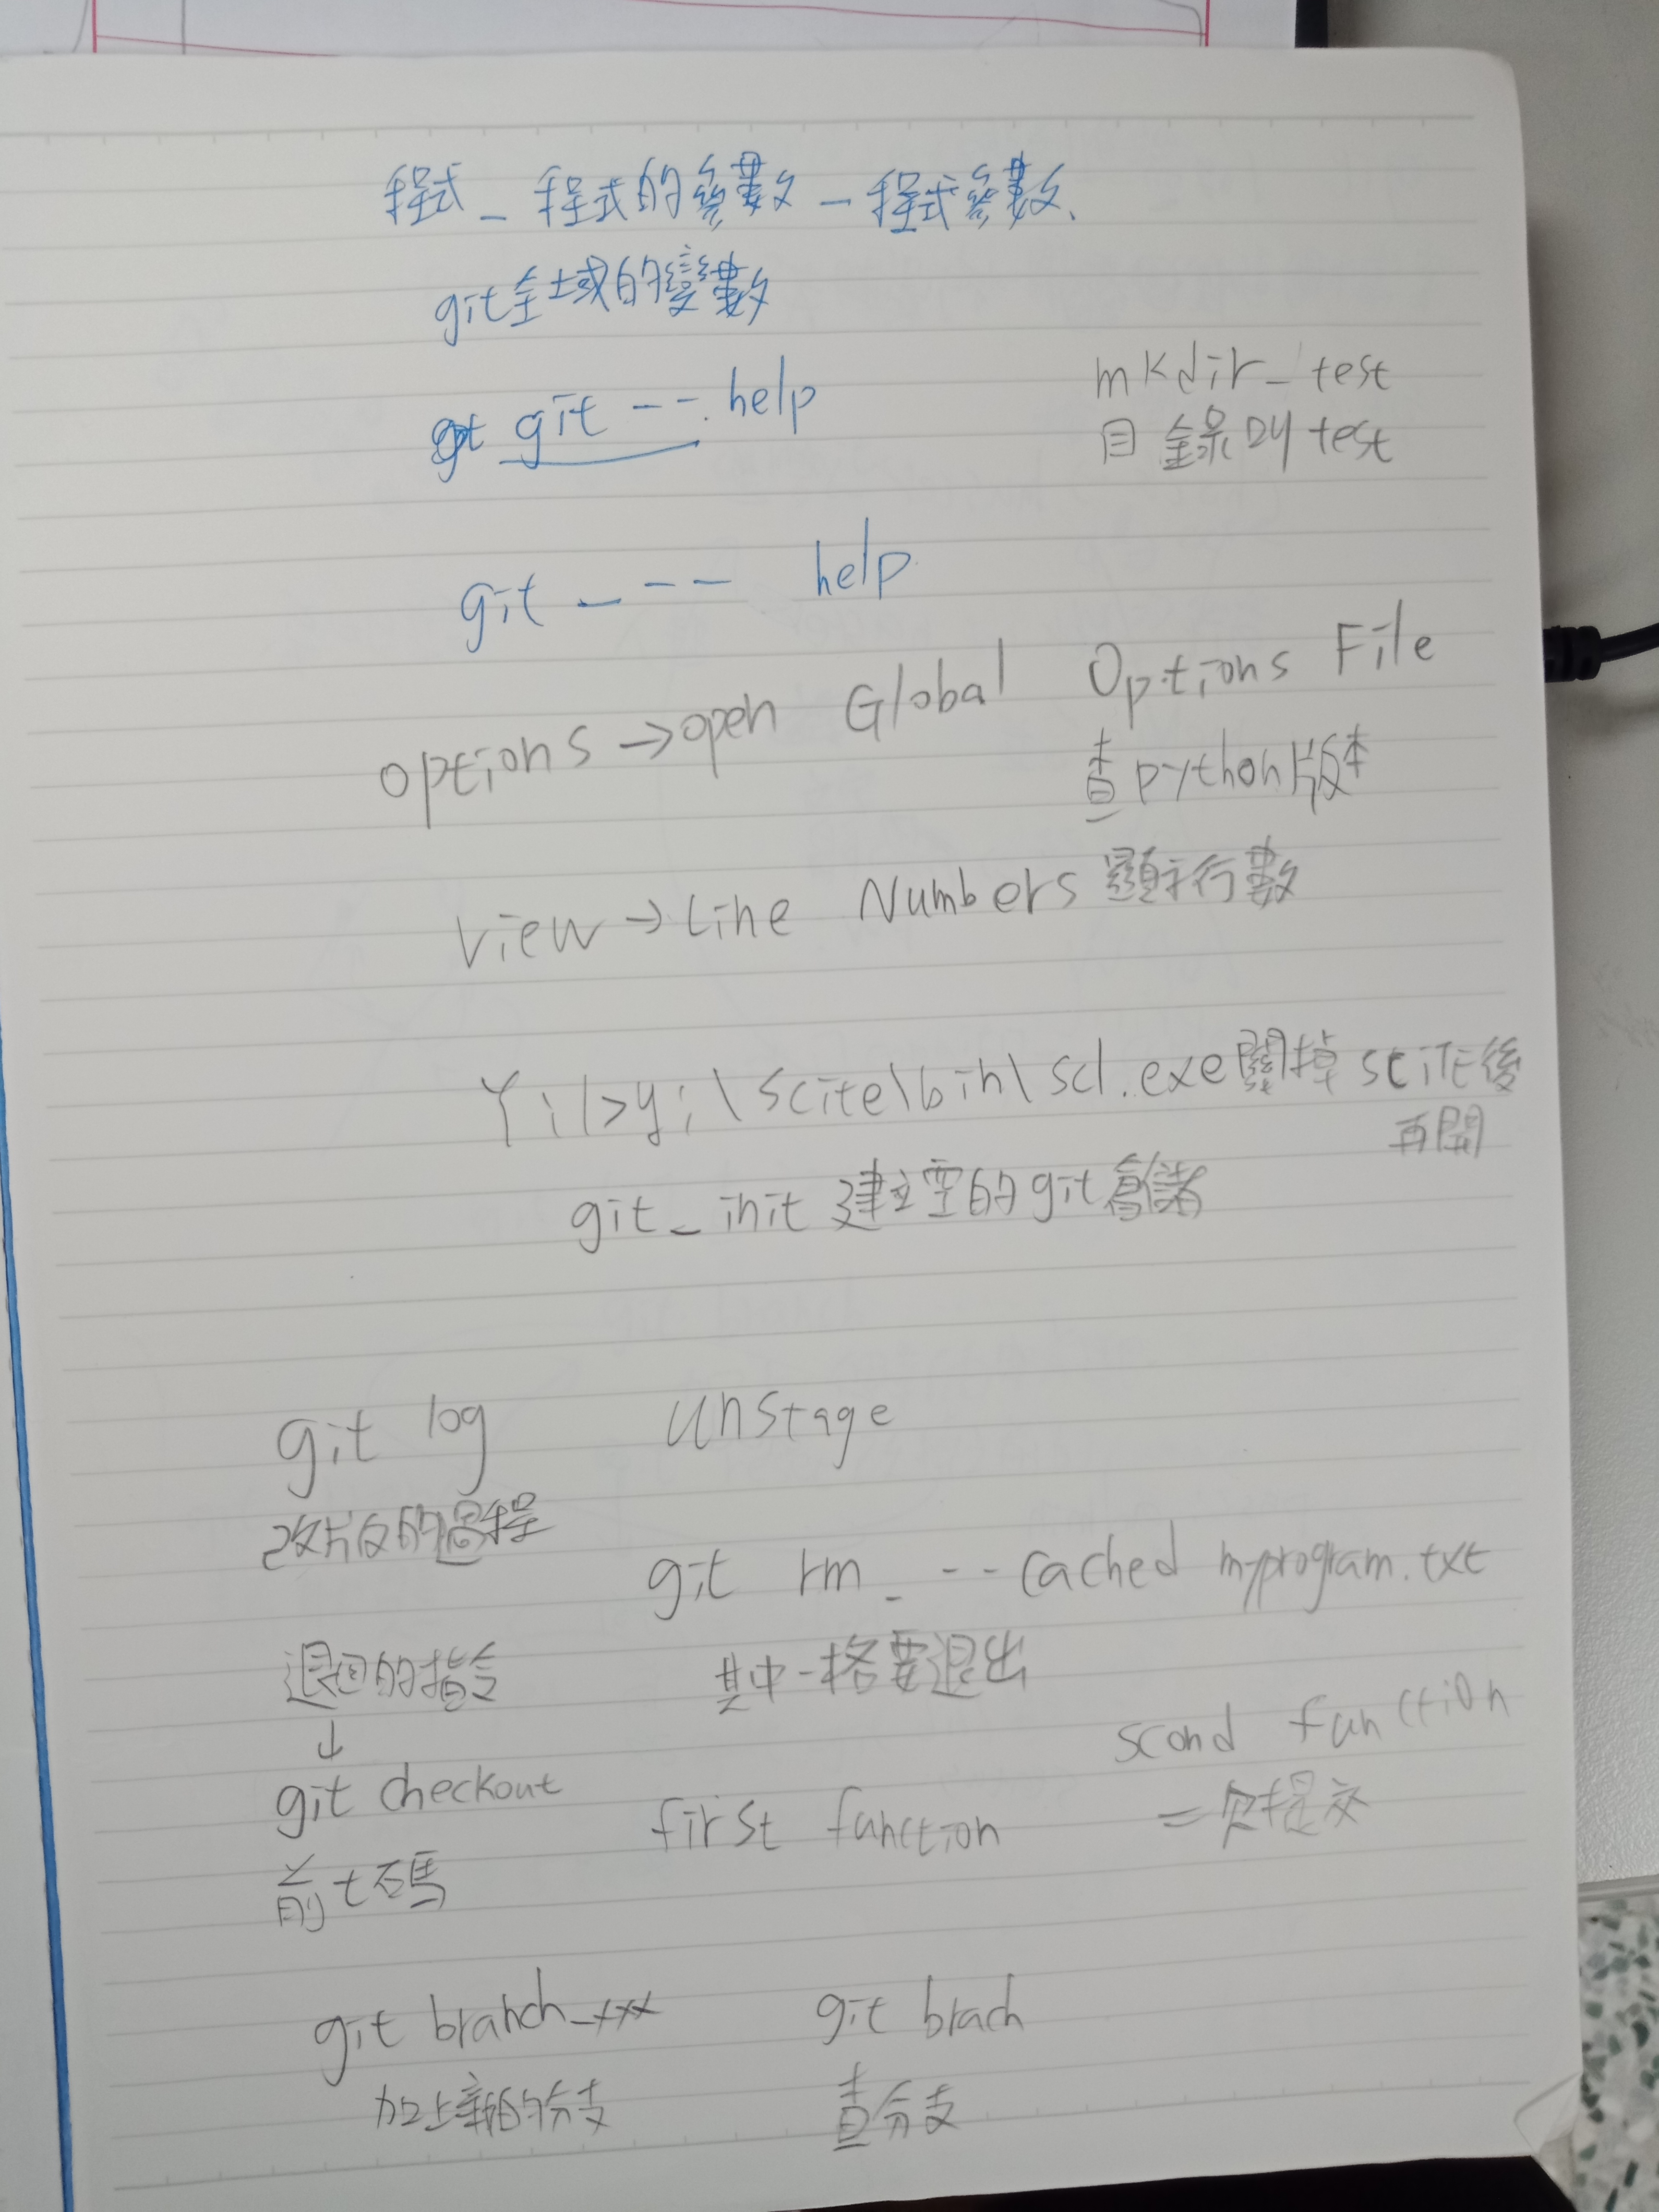 程式_程式的參數_程式參數、
git全域的變數
git --help
mkdir_test
目錄叫test
git_-- help
options→open Global Options File
查python版本
view→Line Numbers 顯示行數
Y:\>y:\scite\bin\scl.exe關掉scite後
再開
git_init 建立空的git倉儲
git log
unstage
改版的過程
git rm_--cached myprogram.txt
退回的指令
其中一格要退出
↓
scond function
git checkout
first function
二次提交
前七碼
git branch_xxx
git brach
加上新的分支
查分支